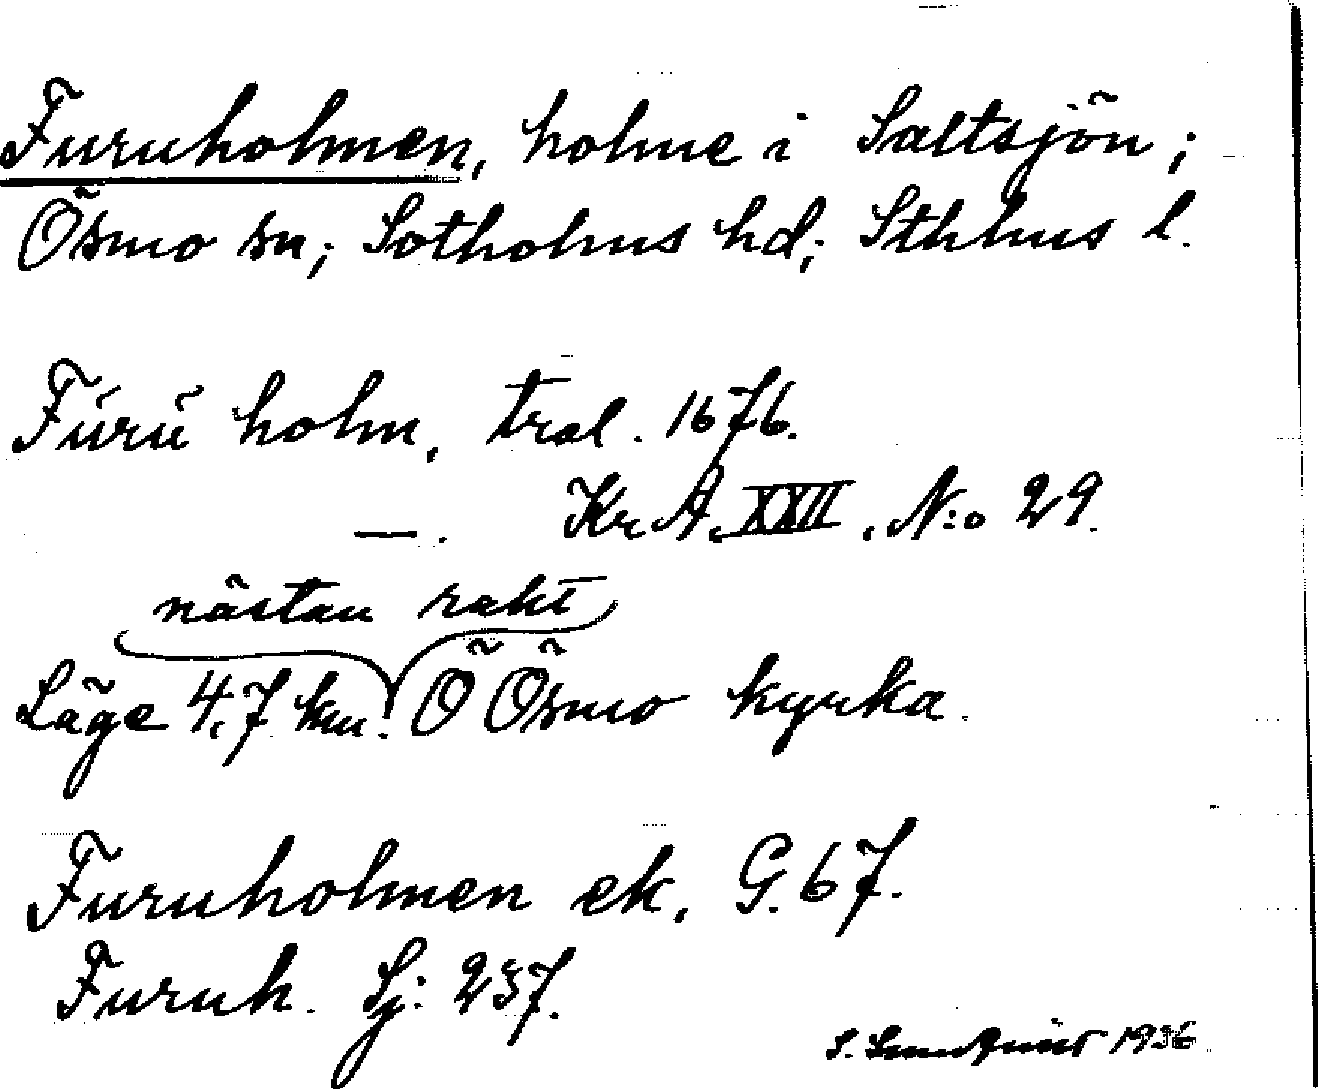 Furuholmen, holme i Saltsjön;
Ösmo sn; Sotholms hd; Sthlms l.
Furu holm, tral. 1676.
—. Kr.A. XXII, N:o 29.
nästan rakt
Läge 4,7 km. Ö Ösmo kyrka.
Furuholmen ek. G. 67.
Furuh. Sj: 237.
S. 1936